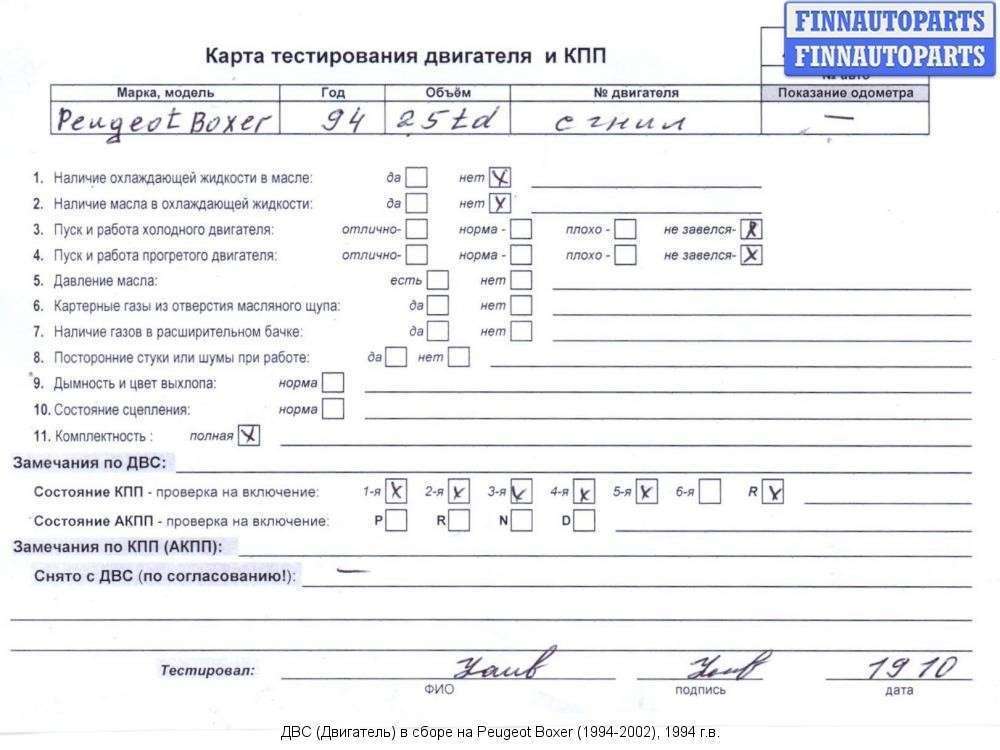 FINNAUTOPARTS
FINNAUTOPARTS
Карта тестирования двигателя и КПП
№ авто
Марка, модель Год Объём № двигателя Показание одометра
Peugeot Boxer 94 2.5td сгнил —
1. Наличие охлаждающей жидкости в масле: да нет X
2. Наличие масла в охлаждающей жидкости: да нет X
3. Пуск и работа холодного двигателя: отлично- норма - плохо - не завелся- X
4. Пуск и работа прогретого двигателя: отлично- норма - плохо - не завелся- X
5. Давление масла: есть нет
6. Картерные газы из отверстия масляного щупа: да нет
7. Наличие газов в расширительном бачке: да нет
8. Посторонние стуки или шумы при работе: да нет
9. Дымность и цвет выхлопа: норма
10. Состояние сцепления: норма
11. Комплектность : полная X
Замечания по ДВС:
Состояние КПП - проверка на включение: 1-я X 2-я X 3-я X 4-я X 5-я X 6-я R X
Состояние АКПП - проверка на включение: P R N D
Замечания по КПП (АКПП):
Снято с ДВС (по согласованию!): —
Тестировал: 19 10
ФИО подпись дата
ДВС (Двигатель) в сборе на Peugeot Boxer (1994-2002), 1994 г.в.